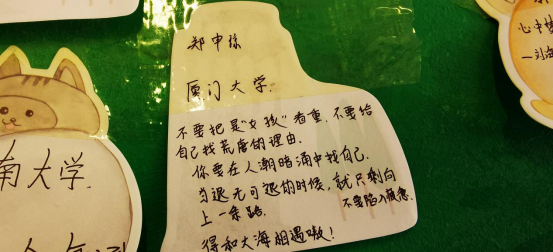 郑中孫
厦门大学.
不要把是"女孩"看重,不要给
自己找荒唐的理由.
你要在人潮暗涌中找自己.
当退无可退的时候,就只剩向
上一条路.
不要陷入顾虑.
得和大海相遇嗷!
南大学.
心中梦
一刘